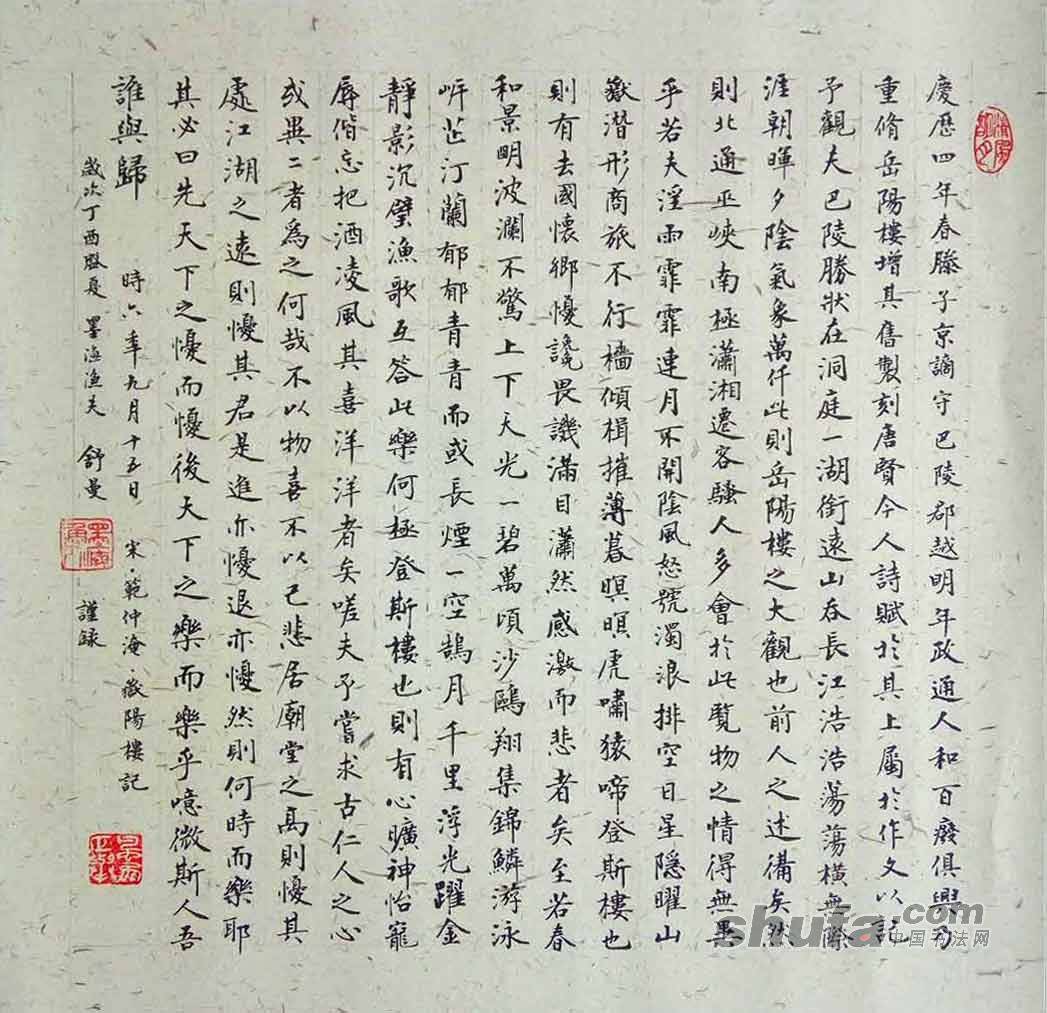 慶歷四年春滕子京謫守巴陵郡越明年政通人和百廢俱興乃
重脩岳陽樓增其舊製刻唐賢今人詩賦於其上屬於作文以記
予觀夫巴陵勝狀在洞庭一湖銜遠山吞長江浩浩蕩蕩橫無際
涯朝暉夕陰氣象萬仟此則岳陽樓之大觀也前人之述備矣然
則北通巫峽南極瀟湘遷客騷人多會於此覽物之情得無異
乎若夫淫雨霏霏連月不開陰風怒號濁浪排空日星隱曜山
嶽潛形商旅不行檣傾楫摧薄暮暝暝虎嘯猿啼登斯樓也
則有去國懷鄉懮讒畏譏滿目瀟然感激而悲者矣至若春
和景明波瀾不驚上下天光一碧萬頃沙鷗翔集錦鱗游泳
岸芷汀蘭郁郁青青而或長煙一空鵠月千里浮光躍金
靜影沉璧漁歌互答此樂何極登斯樓也則有心曠神怡寵
辱偕忘把酒凌風其喜洋洋者矣嗟夫予嘗求古仁人之心
或異二者為之何哉不以物喜不以己悲居廟堂之高則懮其
處江湖之遠則懮其君是進亦懮退亦懮然則何時而樂耶
其必曰先天下之懮而懮後天下之樂而樂乎噫微斯人吾
誰與歸 時六年九月十五日 宋·範仲淹·嶽陽樓記
歲次丁酉盛夏 墨海漁夫 舒曼 謹録
shufa.com
中国书法网